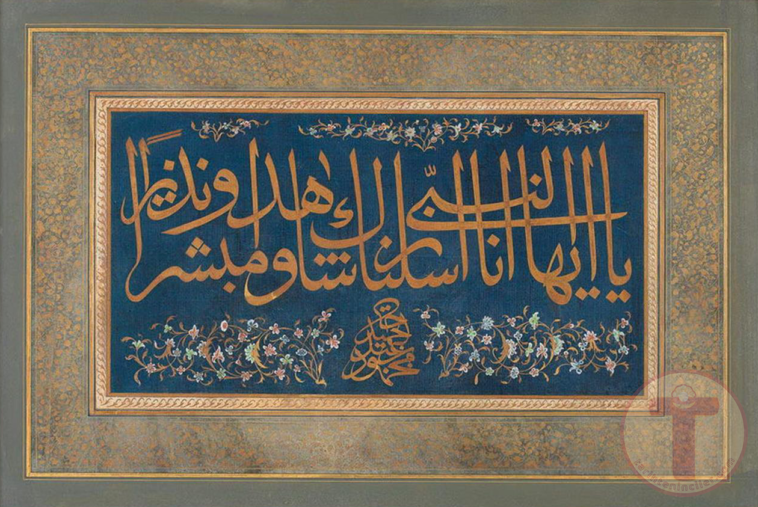 يا ايها النبّى انا ارسلناك شاهدا ومبشرا ونذيراً
محمود
T